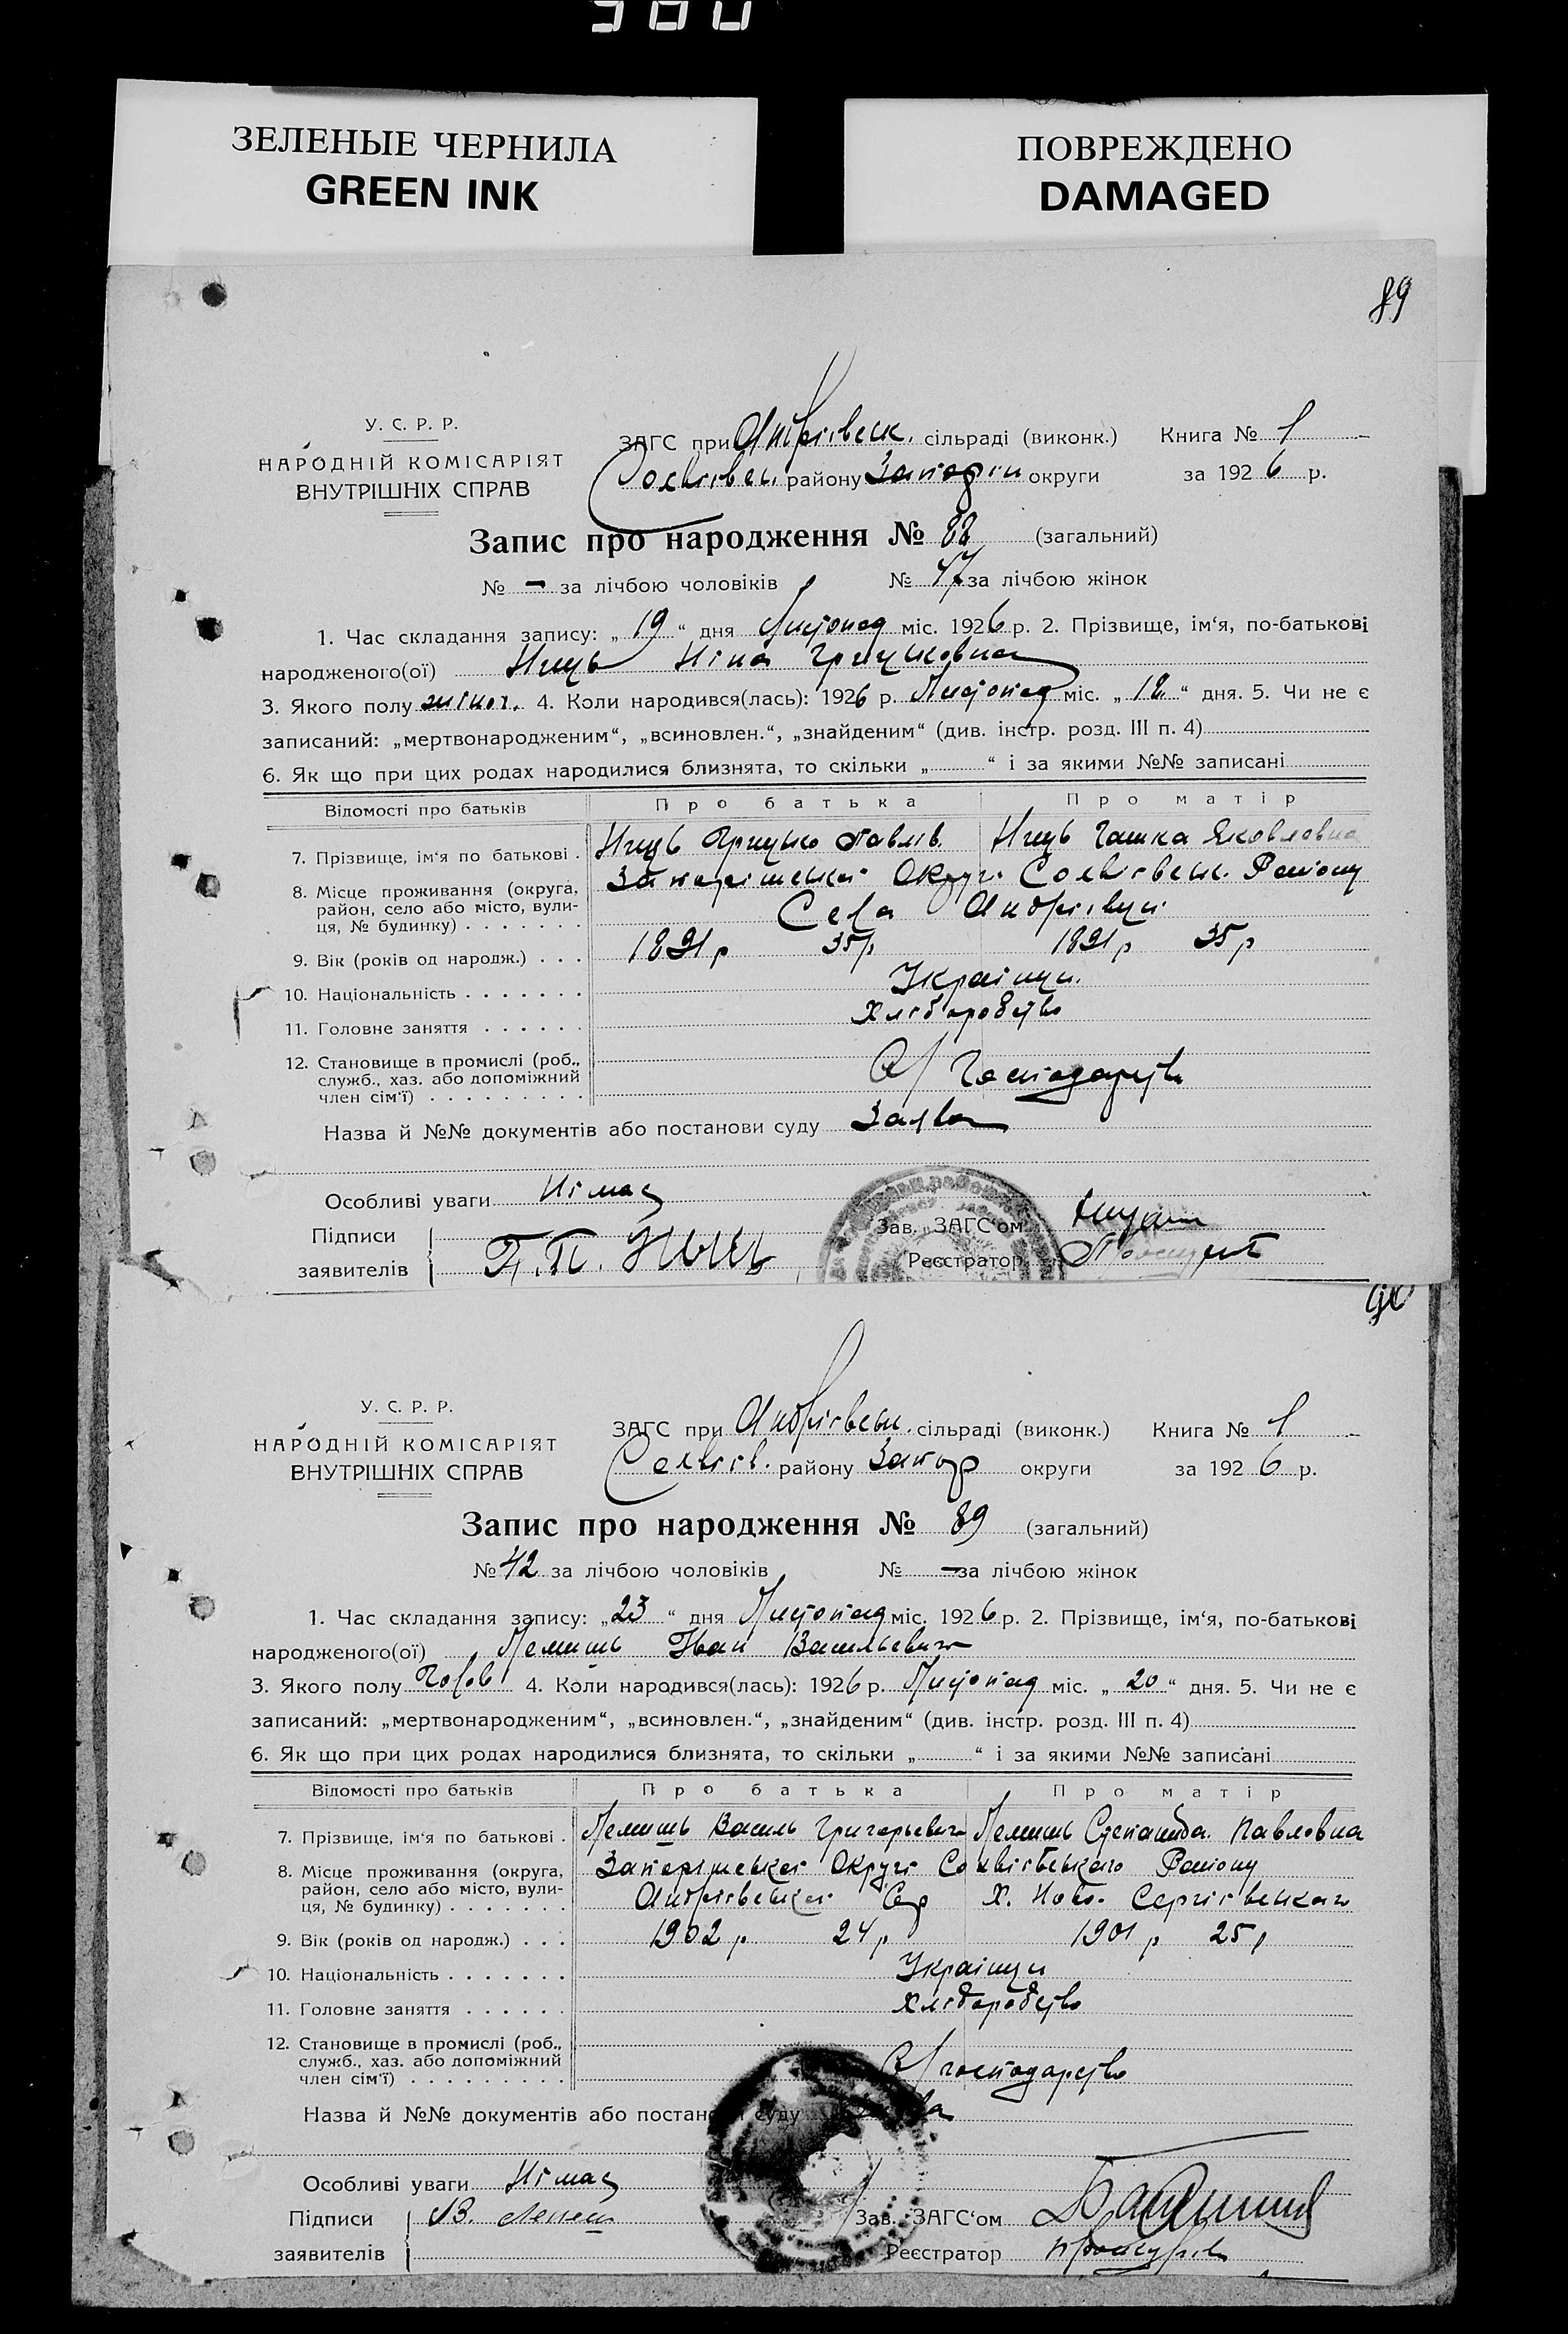 380
ЗЕЛЕНЫЕ ЧЕРНИЛА
GREEN INK
ПОВРЕЖДЕНО
DAMAGED
89
У. С. Р. Р.
НАРОДНІЙ КОМІСАРІЯТ
ВНУТРІШНІХ СПРАВ
ЗАГС при Андріївськ. сільраді (виконк.) Книга № 1
району Запоріж округи за 1926 р.
Запис про народження № 88 (загальний)
№ – за лічбою чоловіків № 47 за лічбою жінок
1. Час складання запису: „19“ дня Листопад міс. 1926 р. 2. Прізвище, ім‘я, по-батькові
народженого(ої) Ниць Ніна Грицьковна
3. Якого полу жіноч. 4. Коли народився(лась): 1926 р. Листопад міс. „18“ дня. 5. Чи не є
записаний: „мертвонародженим“, „всиновлен.“, „знайденим“ (див. інстр. розд. III п. 4)
6. Як що при цих родах народилися близнята, то скільки „ “ і за якими №№ записані
Відомості про батьків Про батька Про матір
7. Прізвище, ім‘я по батькові . Ниць Грицько Павлів. Ниць Гашка Яковловна
8. Місце проживання (округа, район, село або місто, вули-ця, № будинку) Запоріжської Округи Району
Села Андріївци
9. Вік (років од народж.) . . . 1891 р 35 р 1891 р 35 р
10. Національність . . . . . . . Українци.
11. Головне заняття . . . . . . Хліборобство
12. Становище в промислі (роб., служб., хаз. або допоміжний член сім‘ї) С/Господарство
Назва й №№ документів або постанови суду Заява
Особливі уваги Німає
Підписи
заявителів Г.П. Ныць
Зав. „ЗАГС‘ом
Реєстратор
90
У. С. Р. Р.
НАРОДНІЙ КОМІСАРІЯТ
ВНУТРІШНІХ СПРАВ
ЗАГС при Андріївськ. сільраді (виконк.) Книга № 1
району Запор округи за 1926 р.
Запис про народження № 89 (загальний)
№ 42 за лічбою чоловіків № – за лічбою жінок
1. Час складання запису: „23“ дня Листопад міс. 1926 р. 2. Прізвище, ім‘я, по-батькові
народженого(ої) Лемишь Іван Васильевич
3. Якого полу Чолов 4. Коли народився(лась): 1926 р. Листопад міс. „20“ дня. 5. Чи не є
записаний: „мертвонародженим“, „всиновлен.“, „знайденим“ (див. інстр. розд. III п. 4)
6. Як що при цих родах народилися близнята, то скільки „ “ і за якими №№ записані
Відомості про батьків Про батька Про матір
7. Прізвище, ім‘я по батькові . Лемишь Василь Григорьевич Лемишь Степанида Павловна
8. Місце проживання (округа, район, село або місто, вули-ця, № будинку) Запоріжської Округи Району
Андріївської С/р Х. Ново-Сергіївського
9. Вік (років од народж.) . . . 1902 р 24 р 1901 р 25 р
10. Національність . . . . . . . Українци
11. Головне заняття . . . . . . Хліборобство
12. Становище в промислі (роб., служб., хаз. або допоміжний член сім‘ї) С/господарство
Назва й №№ документів або постанови суду Заява
Особливі уваги Німає
Підписи
заявителів В. Лемеш
Зав. ЗАГС‘ом
Реєстратор